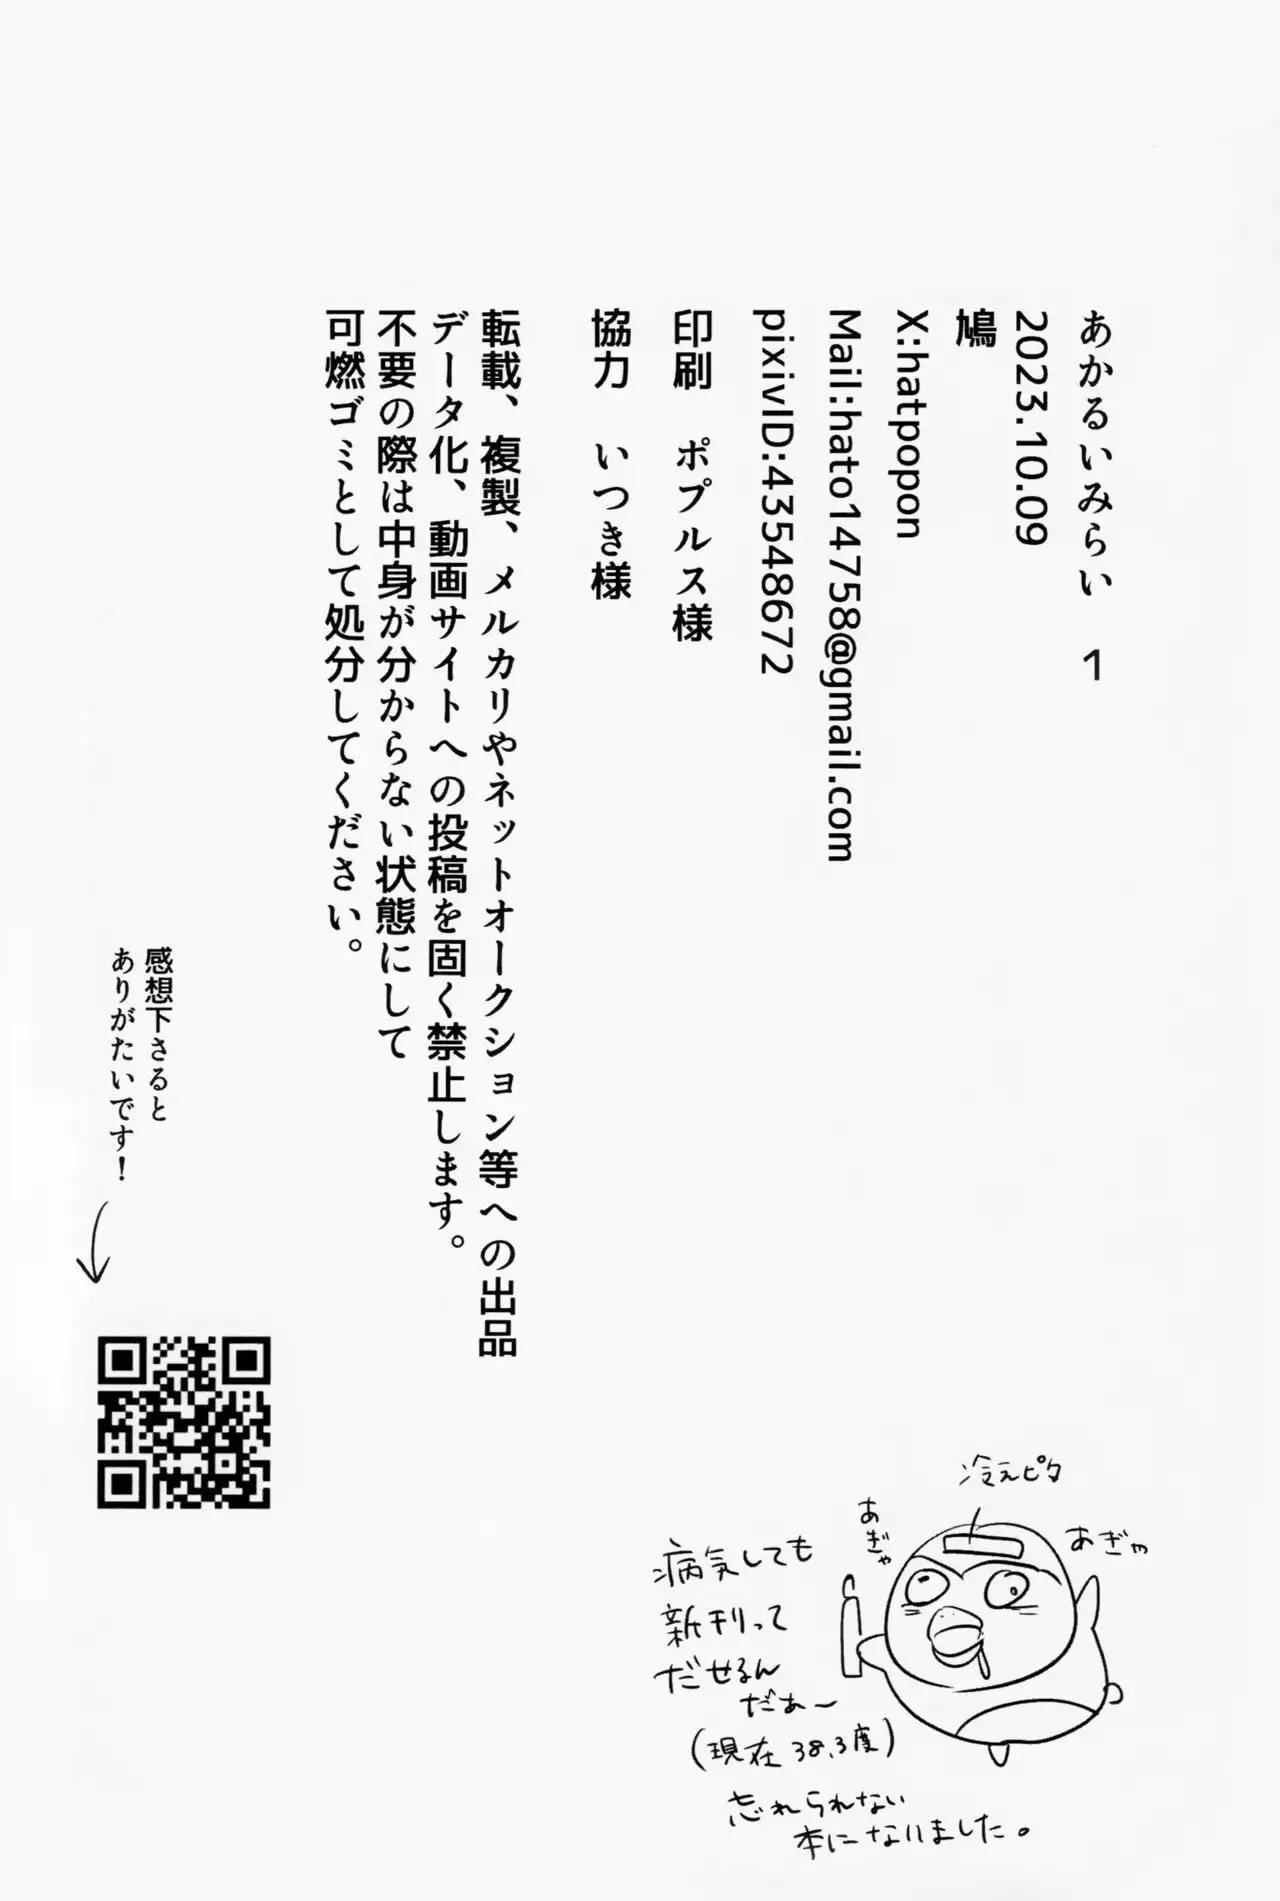 あかるいみらい　1
2023.10.09
鳩
X:hatpopon
Mail:hato14758@gmail.com
pixivID:43548672
印刷　ポプルス様
協力　いつき様
転載、複製、メルカリやネットオークション等への出品
データ化、動画サイトへの投稿を固く禁止します。
不要の際は中身が分からない状態にして
可燃ゴミとして処分してください。
感想下さると
ありがたいです！
冷えピタ
あぎゃ
あぎゃ
病気しても
新刊って
だせるん
だあー
(現在 38.3度)
忘れられない
本になりました。